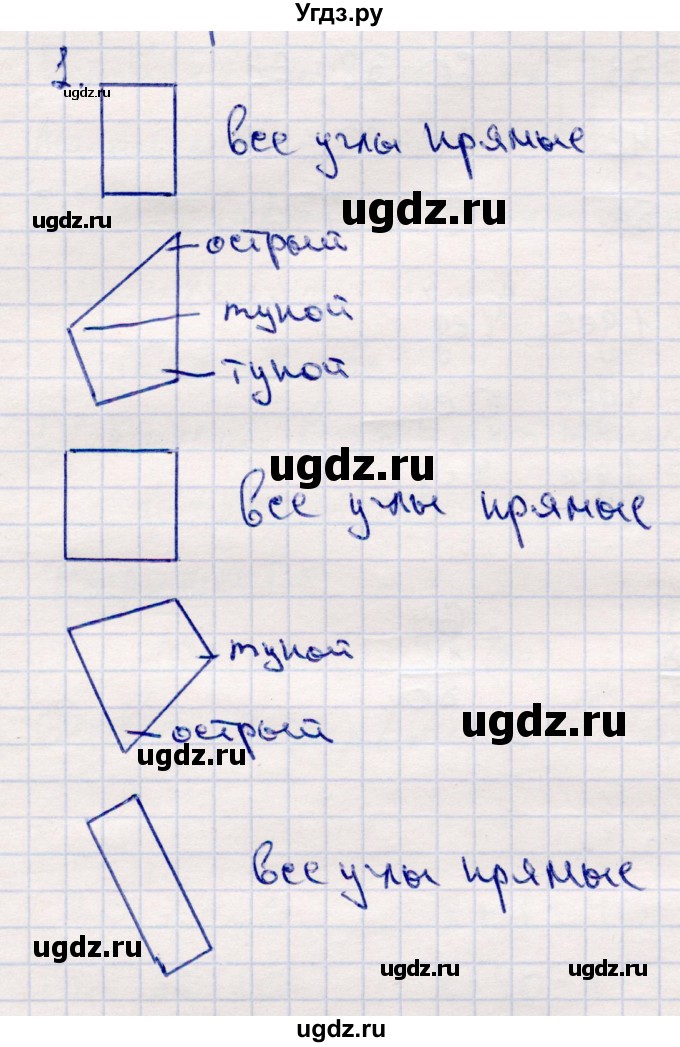 Угдз.ру
1.
ugdz.ru
все углы прямые
ugdz.ru
ugdz.ru
острый
тупой
тупой
ugdz.ru
все углы прямые
тупой
ugdz.ru
острый
ugdz.ru
все углы прямые
ugdz.ru
ugdz.ru
ugdz.ru
ugdz.ru